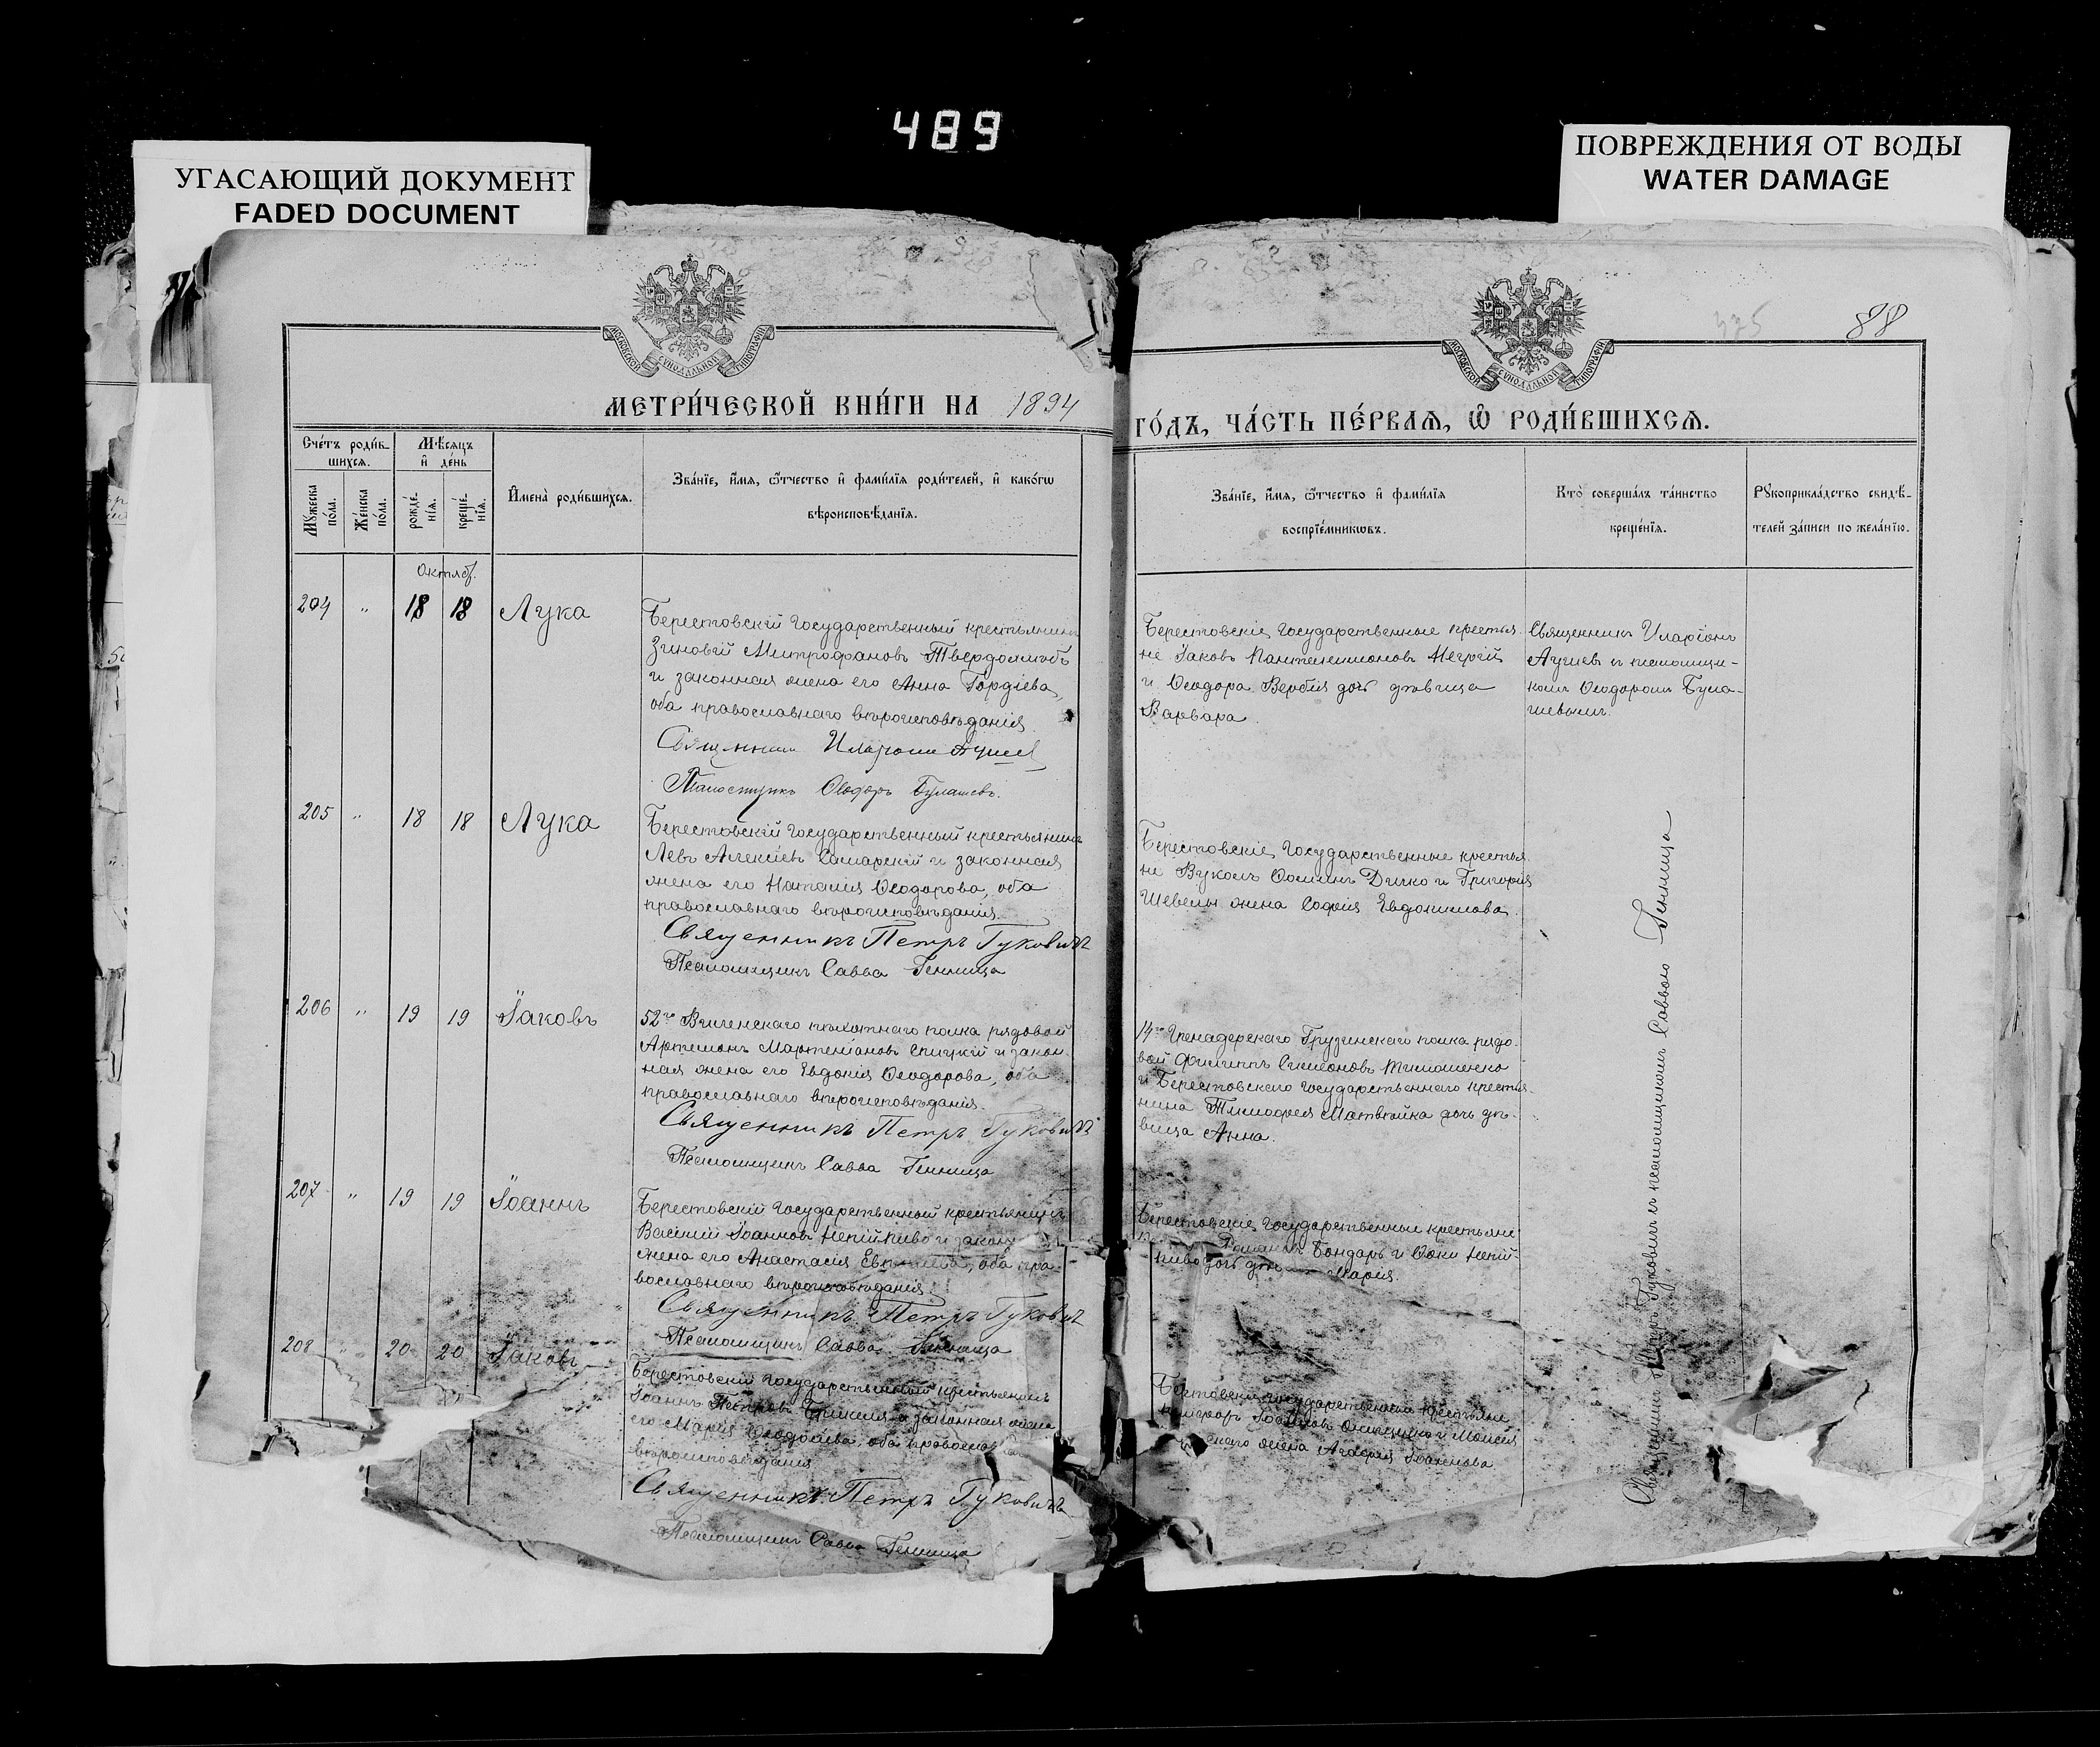 489
УГАСАЮЩИЙ ДОКУМЕНТ
FADED DOCUMENT
ПОВРЕЖДЕНИЯ ОТ ВОДЫ
WATER DAMAGE
375
88
МОСКОВСКОЙ СѴНОДАЛЬНОЙ ТИПОГРАФІИ
МОСКОВСКОЙ СѴНОДАЛЬНОЙ ТИПОГРАФІИ
МЕТРИ́ЧЕСКОЙ КНИ́ГИ НА 1894
ГО́ДЪ, ЧА́СТЬ ПЕ́РВАѦ, Ѡ҆ РОДИ́ВШИХСѦ.
Сче́тъ роди́в-
шихсѧ.
Мѣ́сѧцъ
и҆ де́нь
Мꙋ́жеска
по́ла.
Же́нска
по́ла.
рожде́-
нїѧ.
креще́-
нїѧ.
И҆мена̀ роди́вшихсѧ.
Зва́нїе, и҆́мѧ, ѻ҆́тчество и҆ фами́лїѧ роди́телей, и҆ како́гѡ
вѣроисповѣ́данїѧ.
Зва́нїе, и҆́мѧ, ѻ҆́тчество и҆ фами́лїѧ
воспрїе́мникѡвъ.
Кто̀ соверша́лъ та́инство
креще́нїѧ.
Рꙋкоприкла́дство свидѣ́-
телей за́писи по жела́нїю.
Октяб.
204 " 18 18 Лука
Берестовскій государственный крестьянинъ
Зиновій Митрофановъ Твердохлѣбъ
и законная жена его Анна Гордіева,
оба православнаго вѣроисповѣданія
Священникъ Иларіонъ
Псаломщикъ Ѳеодоръ Булашевъ.
Берестовскіе государственные крестья-
не Іаковъ Пантелимоновъ
и Ѳеодора Вербія дочь дѣвица
Варвара.
Священникъ Иларіонъ
съ псаломщи-
комъ Ѳеодоромъ Була-
шевымъ.
205 " 18 18 Лука
Берестовскій государственный крестьянинъ
Левъ Алексіевъ Самарскій и законная
жена его Наталія Ѳеодорова, оба
православнаго вѣроисповѣданія.
Священникъ Петръ Гуковичъ
Псаломщикъ Савва Генница
Берестовскіе государственные крестья-
не Вуколъ Ѳоминъ Дичко и Григорія
Шевелы жена Софія Евдокимова.
206 " 19 19 Іаковъ
52го Виленскаго пѣхотнаго полка рядовой
Артемонъ Спицкій и закон-
ная жена его Евдокія Ѳеодорова, оба
православнаго вѣроисповѣданія.
Священникъ Петръ Гуковичъ
Псаломщикъ Савва Генница
14го Гренадерскаго Грузинскаго полка рядо-
вой Филиппъ Симеоновъ Тимошенко
и Берестовскаго государственнаго крестья-
нина Тимофея Матвѣйка дочь дѣ-
вица Анна.
207 " 19 19 Іоаннъ
Берестовскій государственный крестьянинъ
Василій Іоанновъ Непійпиво и закон
жена его Анастасія оба пра-
вославнаго вѣроисповѣданія
Священникъ Петръ Гуковичъ
Псаломщикъ Савва Генница
Берестовскіе государственные крестьяне
Бондарь и Непій-
пиво дочь Марія.
208 " 20 20 Іаковъ
Берестовскій государственный крестьянинъ
Іоаннъ Петровъ и законная жена
его Марія оба православ
вѣроисповѣданія
Священникъ Петръ Гуковичъ
Псаломщикъ Савва Генница
Берестовскіе государственные крестьяне
Іоанновъ и Моисея
жена Агафія Іоаннова
Священникъ Петръ Гуковичъ съ псаломщикомъ Саввою Генница